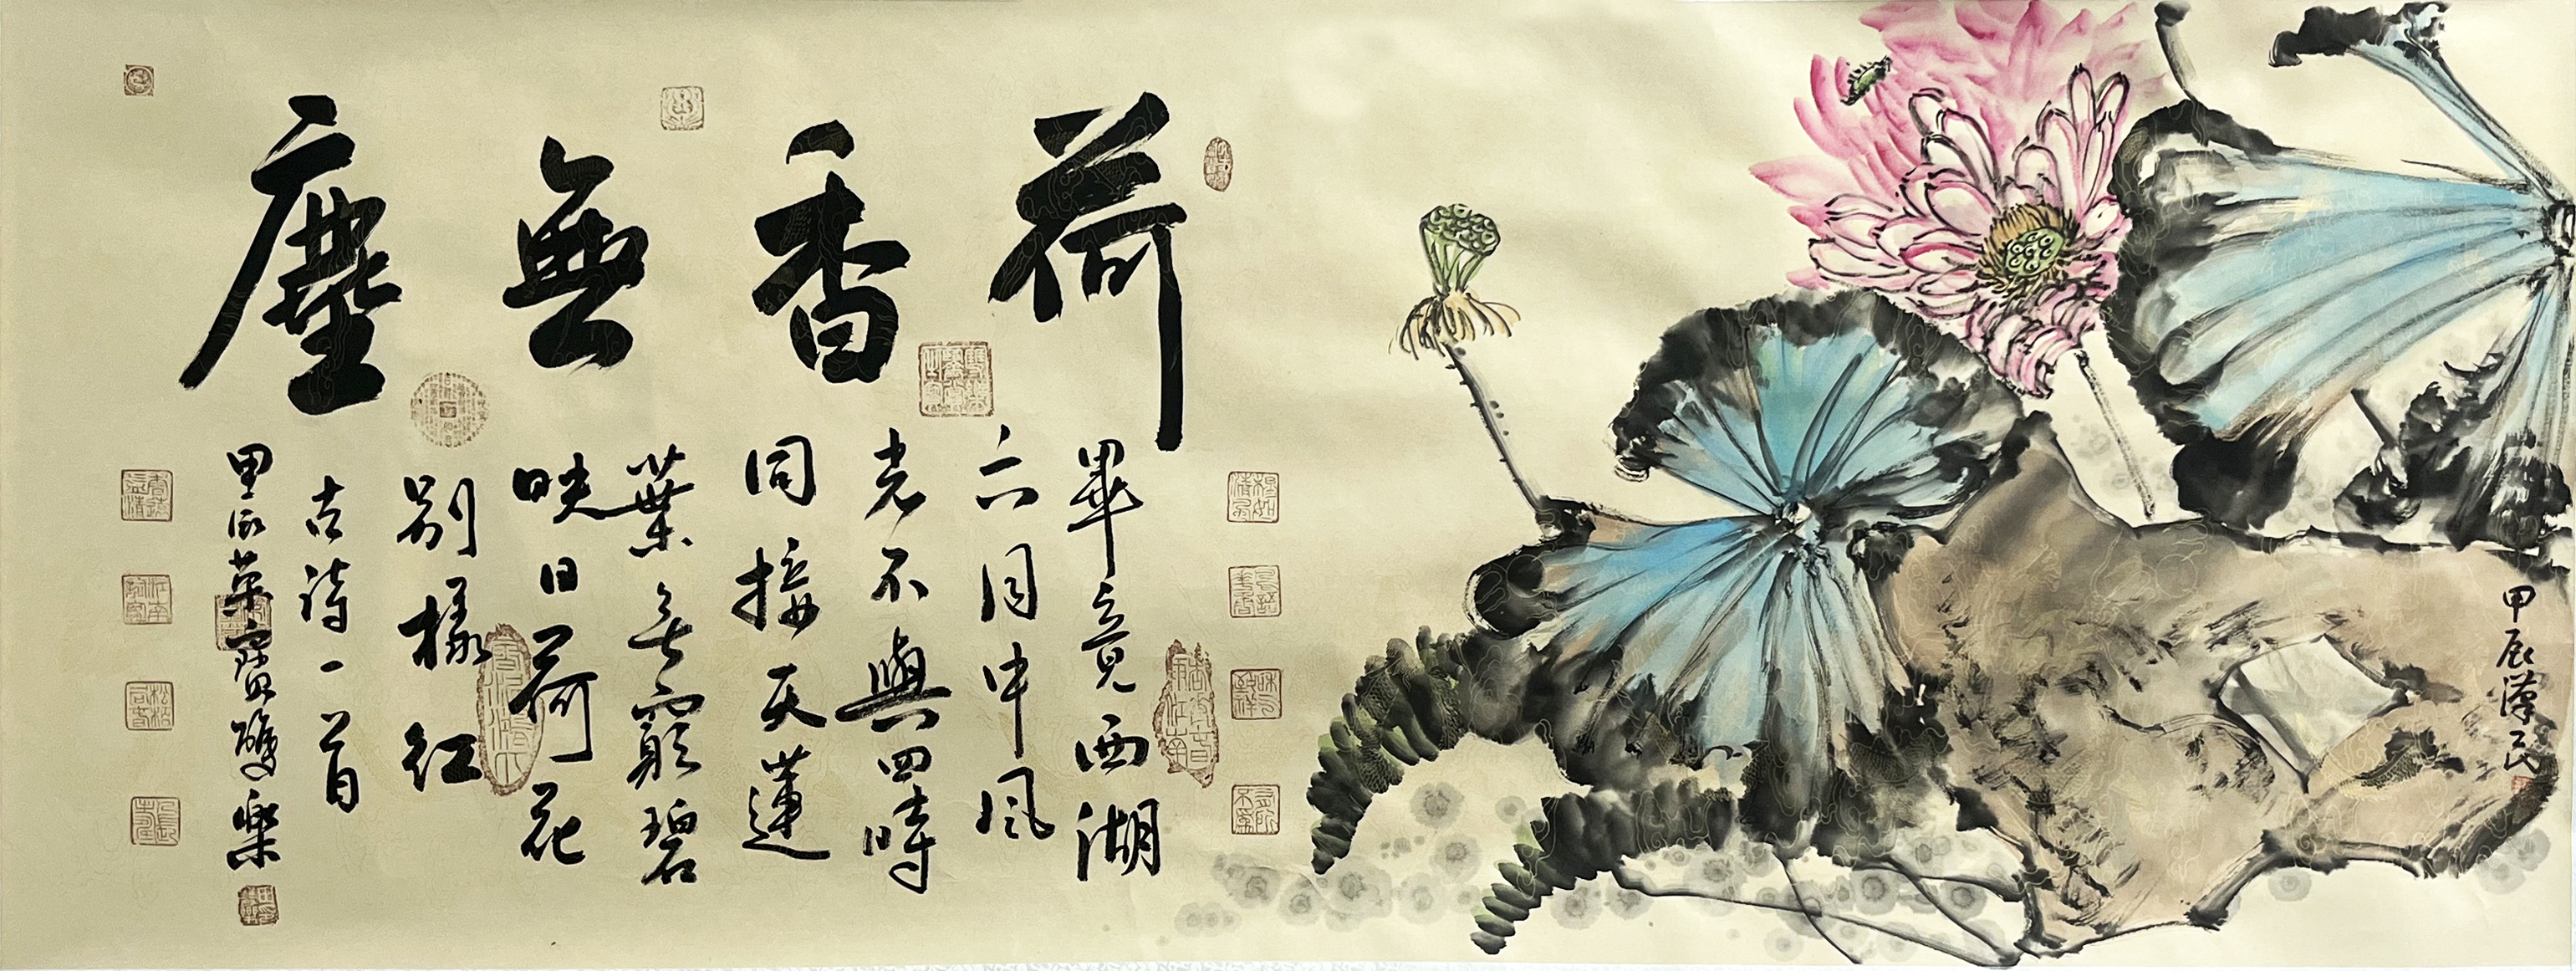 甲辰漢民
荷香無塵
畢竟西湖
六月中風
光不與四時
同接天蓮
葉無窮碧
映日荷花
別樣紅
古詩一首
甲辰雙樂